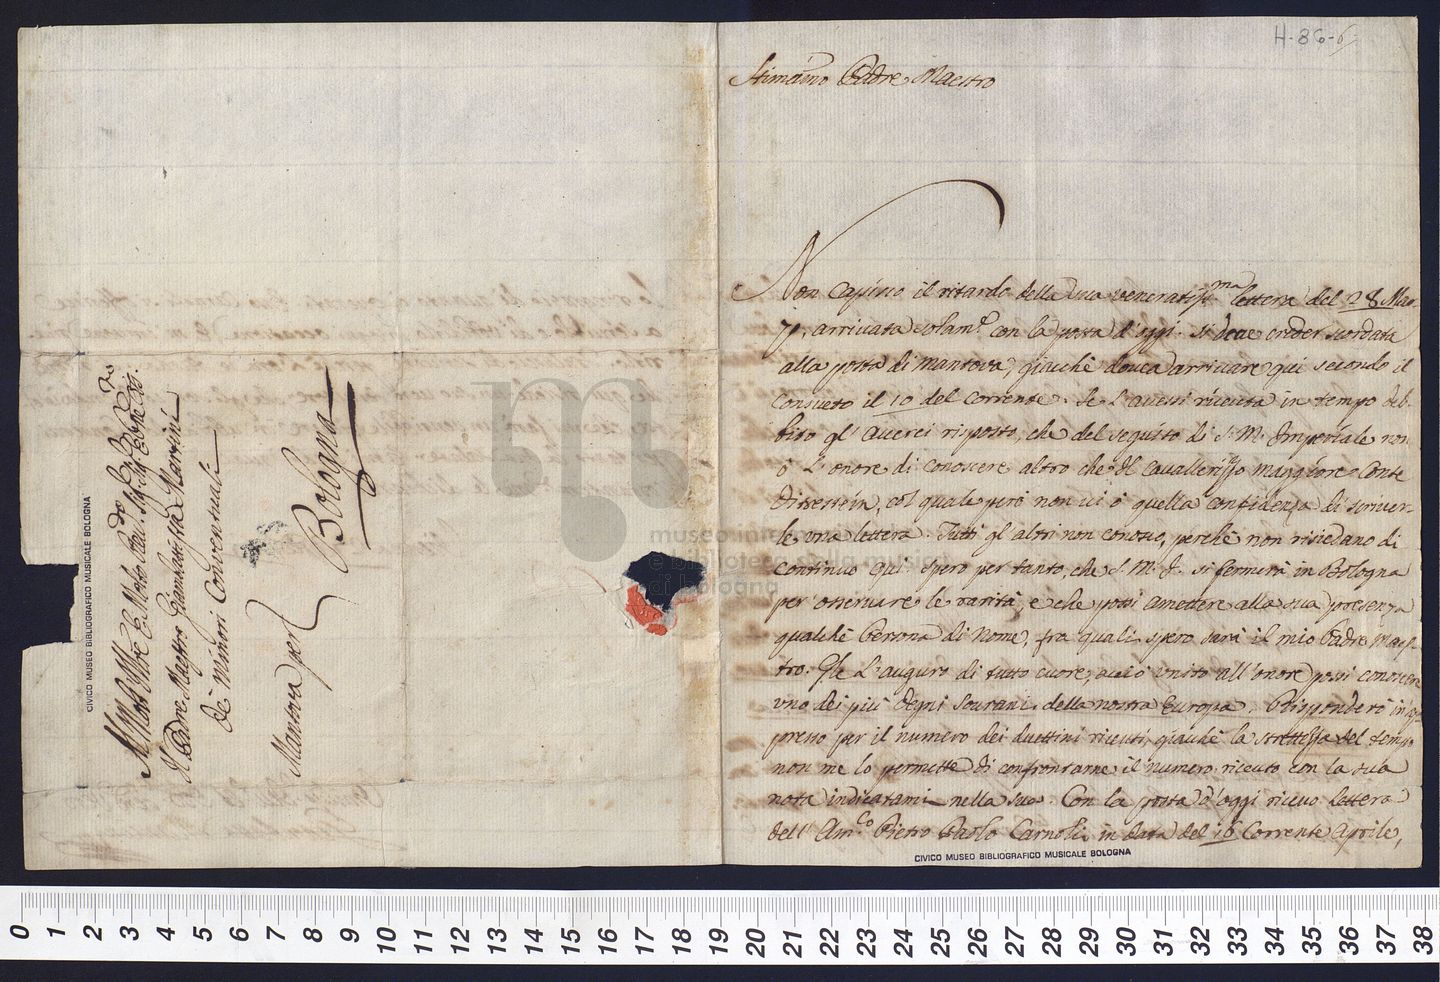 H-86-6
Stimatissimo Padre Maestro
Non Capisco il ritardo della sua veneratissma lettera del 28 Mar-
zo, arrivata solamte con la posta d'oggi. Si deve creder scordata
alla posta di Mantova, giacchè dovea arrivare qui secondo il
Consueto il 10 del Corrente. Se l'avessi ricevuta in tempo deb-
bito gl' averei risposto, che del seguito di S. M. Imperiale non
ò l'onore di conoscere altro che il Cavallerizzo maggiore Conte
col quale però non vi è quella confidenza di scriver-
le una lettera. Tutti gl' altri non conosco, perchè non risiedano di
Continuo qui. Spero per tanto, che S. M. I. si fermerà in Bologna
per osservare le rarità, e che possi amettere alla sua presenza
qualche Persona di Nome, fra quali spero sarà il mio Padre Maes-
tro. Gle l'auguro di tutto cuore, acciò unito all'onore possi conoscere
uno dei più degni Sovrani della nostra Europa. Risponderò in ap-
presso per il numero dei duettini ricevuti, giacchè la strettezza del tempo
non me lo permette di confrontarne il numero ricevuto con la sua
nota indicatami nella sua. Con la posta d'oggi ricevo lettera
dell' Amco Pietro Paolo Carnoli in data del 16 Corrente Aprile,
CIVICO MUSEO BIBLIOGRAFICO MUSICALE BOLOGNA
Al Padre Maestro Giambattista Martini
de Minori Conventuali
Mantova per
Bologna
CIVICO MUSEO BIBLIOGRAFICO MUSICALE BOLOGNA
museo internazionale
e biblioteca della musica
di bologna
0 1 2 3 4 5 6 7 8 9 10 11 12 13 14 15 16 17 18 19 20 21 22 23 24 25 26 27 28 29 30 31 32 33 34 35 36 37 38